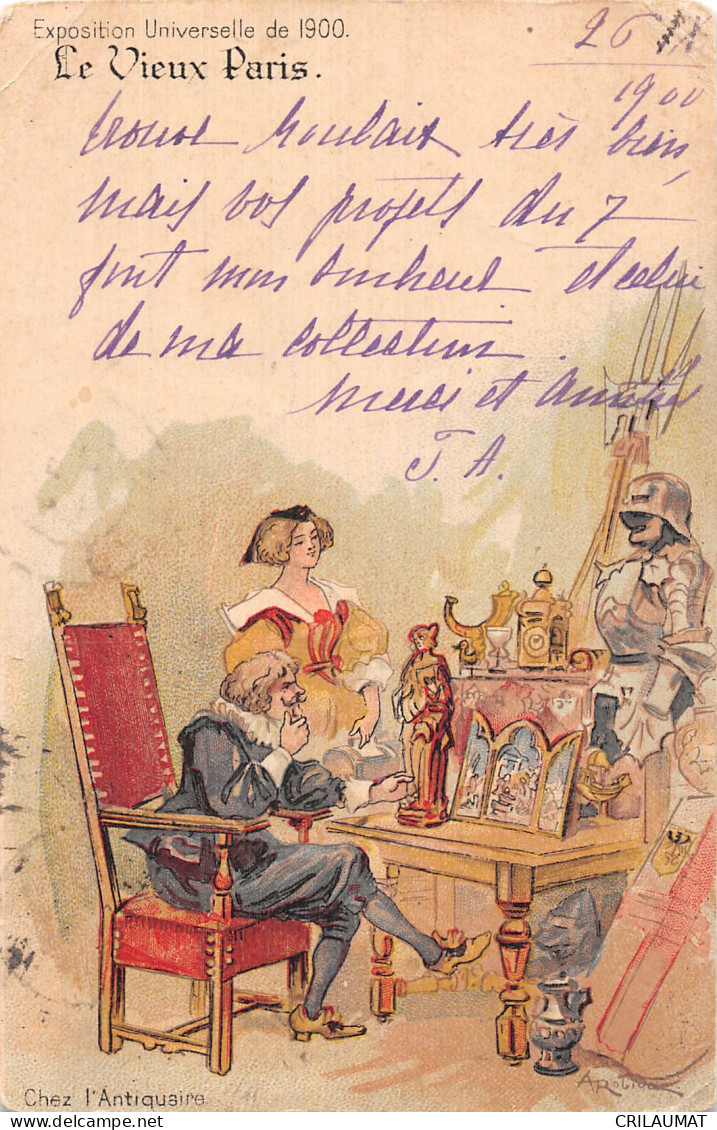 Exposition Universelle de 1900.
Le Vieux Paris.
26
1900
trouve Roubaix très bien,
mais vos projets du 7
font mon bonheur et celui
de ma collection.
Merci et Amitiés
J. A.
A. Robida
Chez l'Antiquaire
CRILAUMAT